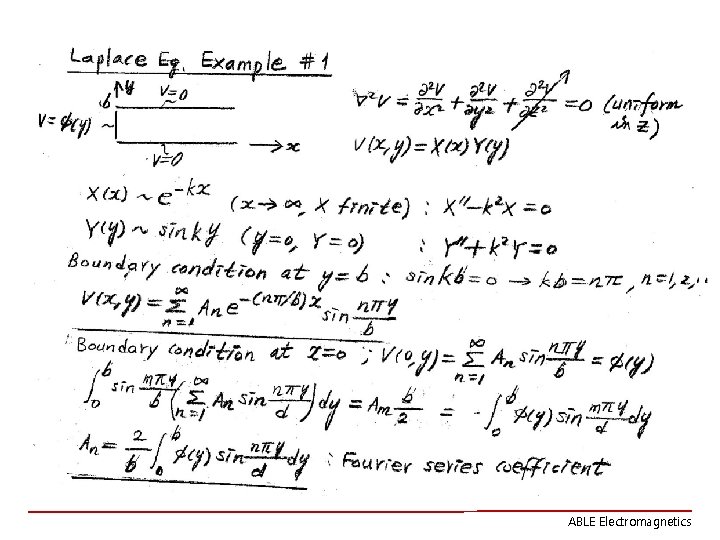 Laplace Eq. Example #1
b y V=0
V=ϕ(y) ~
V=0 → x
∇²V = ∂²V/∂x² + ∂²V/∂y² + ∂²V/∂z² = 0 (uniform in z)
V(x,y) = X(x)Y(y)
X(x) ~ e^{-kx} (x→∞, X finite) : X″-k²X=0
Y(y) ~ sin ky (y=0, Y=0) : Y″+k²Y=0
Boundary condition at y=b : sin kb=0 → kb=nπ, n=1,2,..
V(x,y) = ∑_{n=1}^{∞} An e^{-(nπ/b)x} sin nπy/b
Boundary condition at x=0 ; V(0,y) = ∑_{n=1}^{∞} An sin nπy/b = ϕ(y)
∫_0^b sin mπy/b (∑_{n=1}^{∞} An sin nπy/d) dy = Am b/2 = ∫_0^b ϕ(y) sin mπy/d dy
An = 2/b ∫_0^b ϕ(y) sin nπy/d dy : Fourier series coefficient
ABLE Electromagnetics